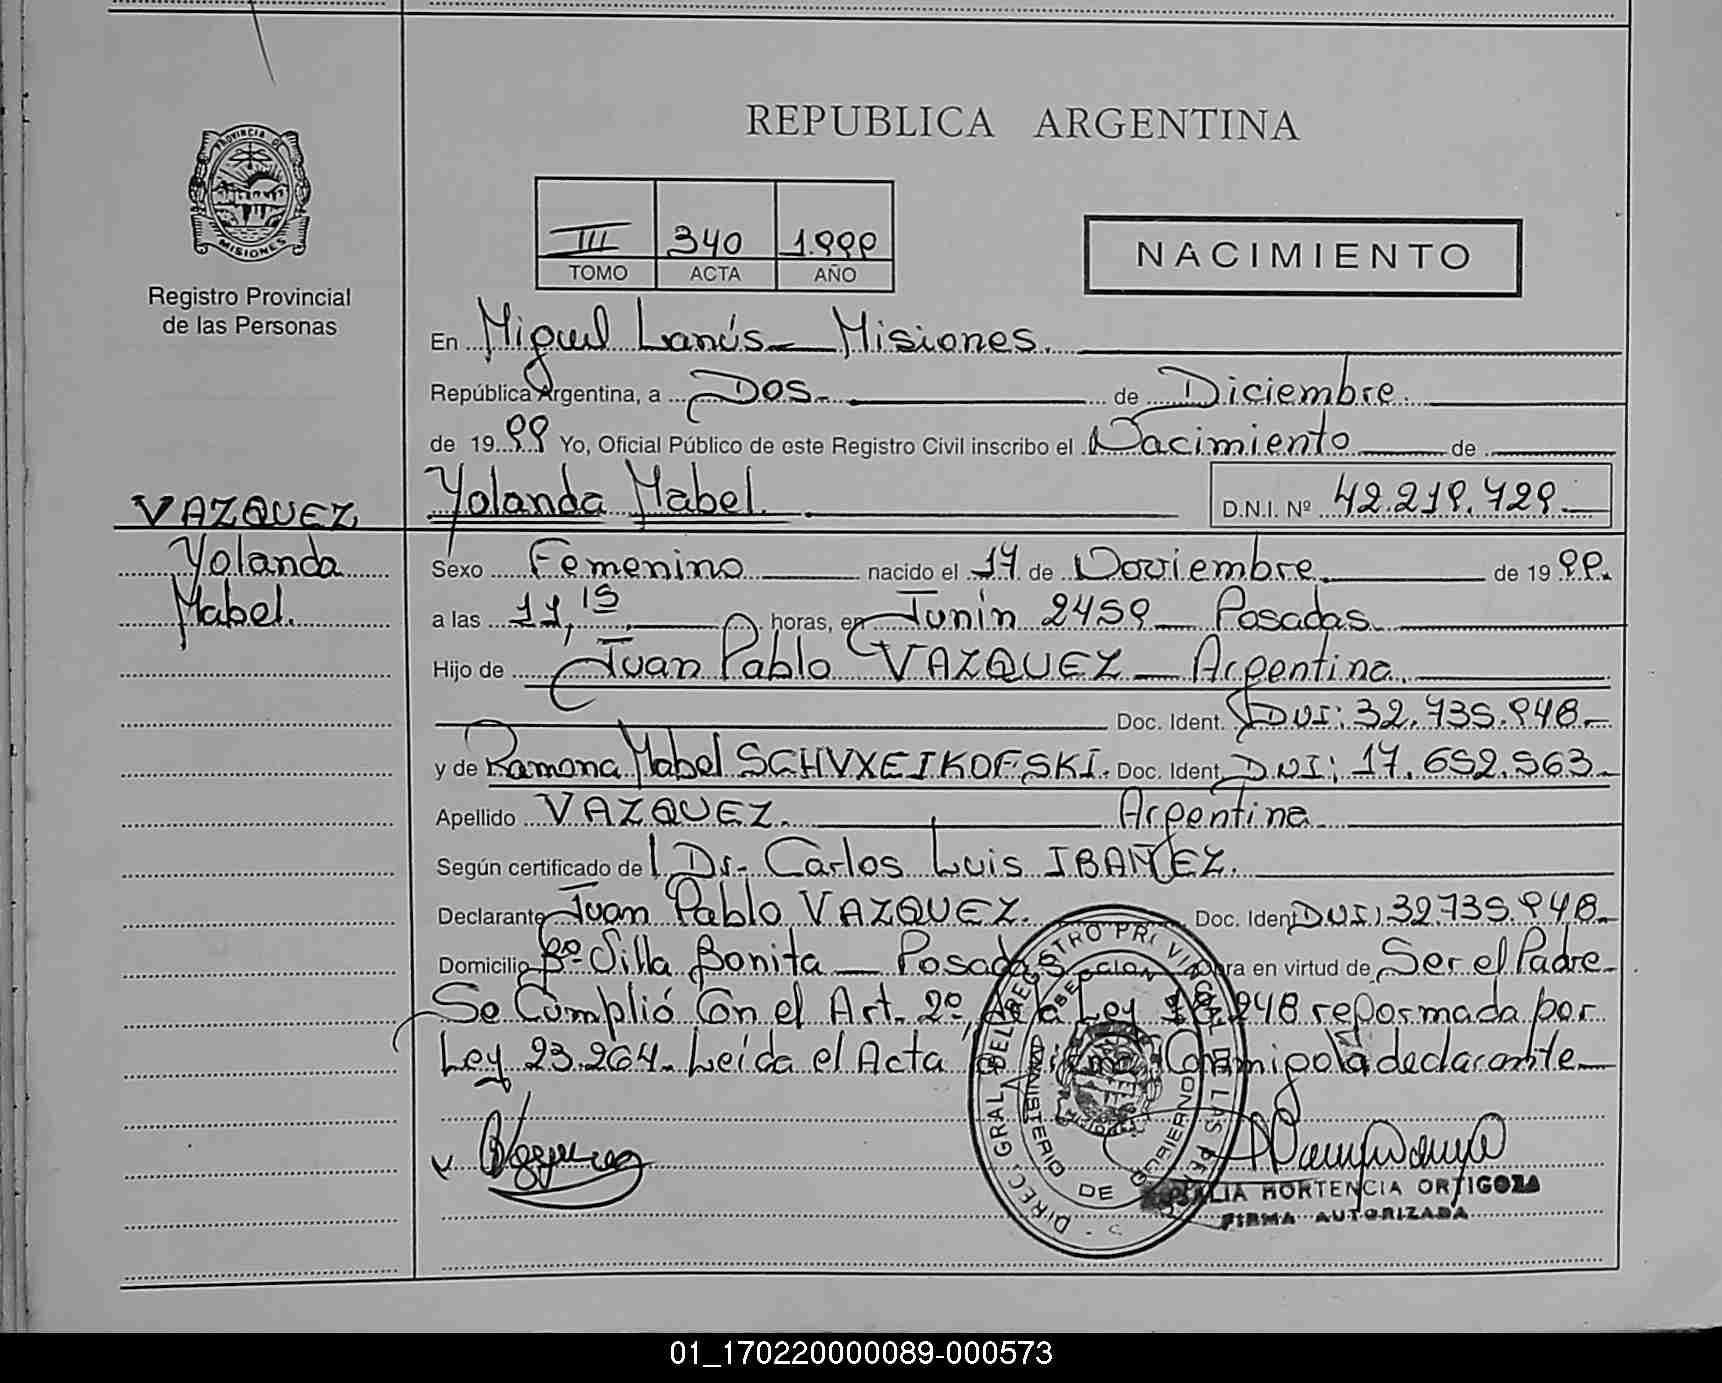 REPUBLICA ARGENTINA
PROVINCIA DE
MISIONES
Registro Provincial
de las Personas
III 340 1.999
TOMO ACTA AÑO
NACIMIENTO
En Miguel Lanús - Misiones.
República Argentina, a Dos. de Diciembre.
de 1999 Yo, Oficial Público de este Registro Civil inscribo el Nacimiento de
VAZQUEZ Yolanda Mabel. D.N.I. Nº 42.219.729.
Yolanda Sexo Femenino nacido el 17 de Noviembre. de 1999.
Mabel. a las 11,15 horas, en Junin 2459 - Posadas.
Hijo de Juan Pablo VAZQUEZ - Argentina.
Doc. Ident. DNI: 32.735.948.-
y de Ramona Mabel SCHVXEIKOFSKI. Doc. Ident. DNI: 17.652.563.-
Apellido VAZQUEZ. Argentina
Según certificado de Dr. Carlos Luis IBAÑEZ.
Declarante Juan Pablo VAZQUEZ. Doc. Ident DNI: 32.735.948.-
Domicilio Bº Villa Bonita - Posadas obra en virtud de Ser el Padre.
Se Cumplió Con el Art. 2º, de la Ley 18.248 reformada por
Ley 23.264. Leída el Acta la firma Conmigo la declarante -
DIREC. GRAL. DEL REGISTRO PROVINCIAL DE LAS PERSONAS
MINISTERIO DE GOBIERNO
HORTENCIA ORTIGOZA
FIRMA AUTORIZADA
01_170220000089-000573